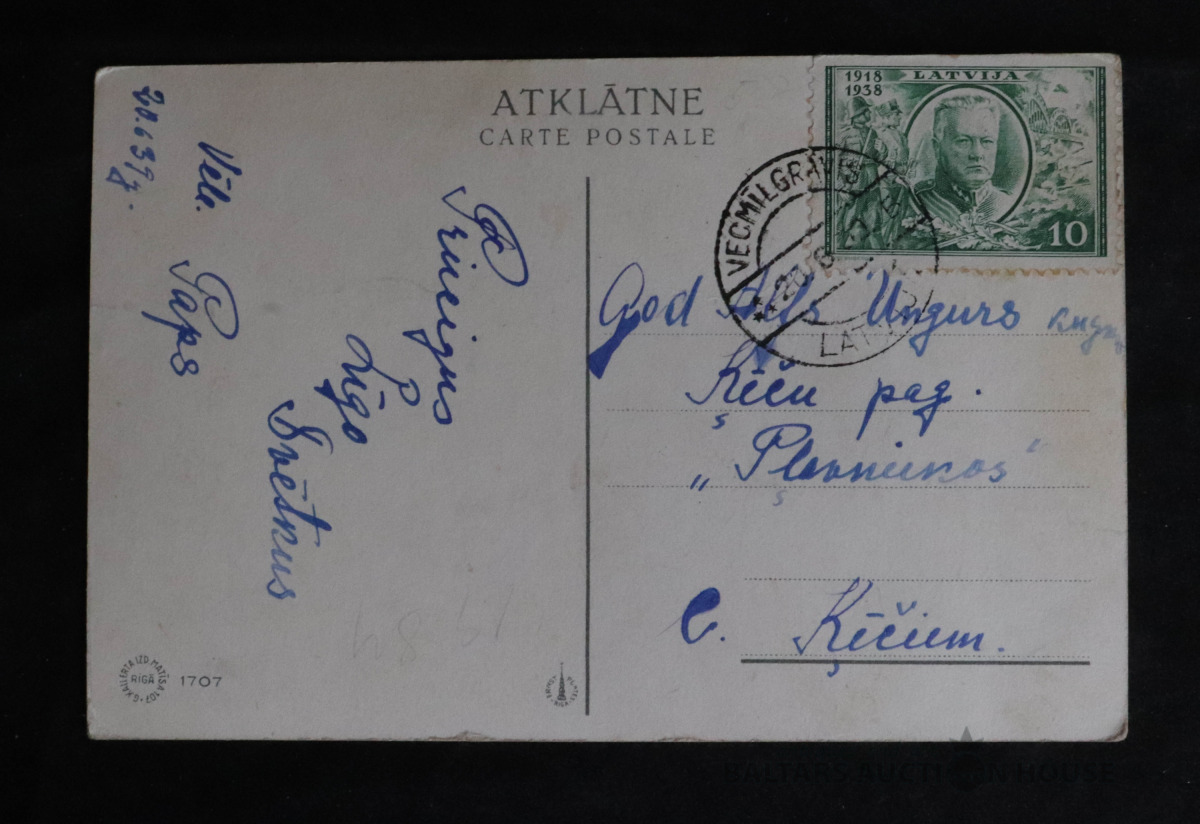 ATKLĀTNE
CARTE POSTALE
1918
1938
LATVIJA
10
VECMĪLGRĀVIS
LATVIJA
20 6
Priecigus
Līgo
Svētkus
Vēle.
Paps
God Ungurs kngz
Ķēču pag.
„Pļavniekos"
c. Ķēčiem.
G. KALLERTA IZD. MATĪSA 107
RĪGĀ
1707
BALTARS AUCTION HOUSE